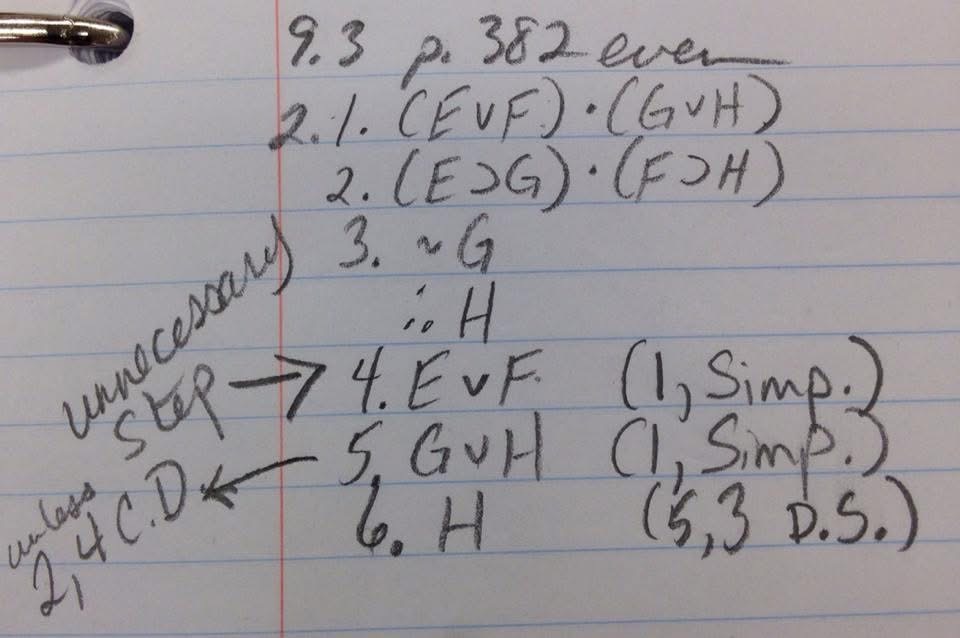 9.3 p. 382 even
2. 1. (E v F) · (G v H)
2. (E ⊃ G) · (F ⊃ H)
3. ~ G
∴ H
4. E v F. (1, Simp.)
5. G v H (1, Simp.)
6. H (5,3 D.S.)
unnecessary
step →
unless ←
2,4 C.D